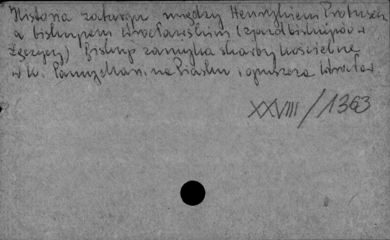 Historia zatargu między Henrykiem Probusem
a biskupem wrocławskim (zjazd biskupów w
Łęczycy) Biskup zamyka skarby kościelne
w kl. Panny Mar. na Piasku i opuszcza Wrocław.
XXVIII/1363